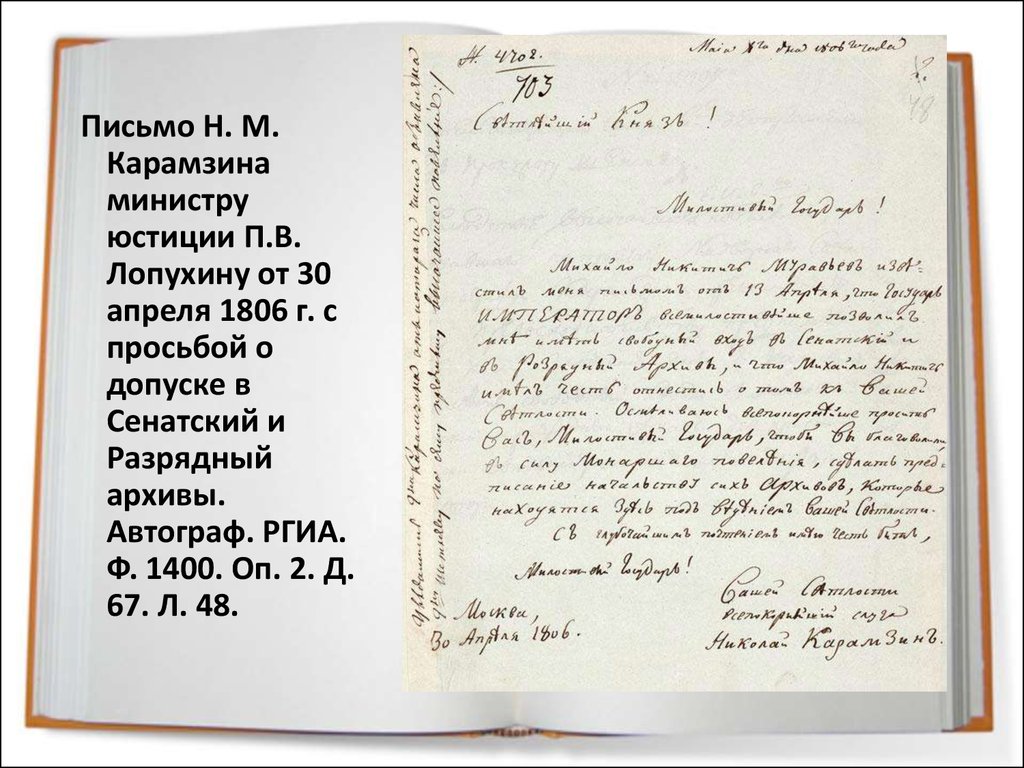 Письмо Н. М.
Карамзина
министру
юстиции П.В.
Лопухину от 30
апреля 1806 г. с
просьбой о
допуске в
Сенатский и
Разрядный
архивы.
Автограф. РГИА.
Ф. 1400. Оп. 2. Д.
67. Л. 48.
№ 4702.
103
Маія
дня 1806 года
48
Свѣтлѣйшій Князь!
Милостивый Государь!
Михайло Никитичь Муравьевъ извѣ-
стилъ меня письмомъ отъ 13 Апрѣля, что Государь
ИМПЕРАТОРЪ всемилостивѣйше позволилъ
мнѣ имѣть свободный входъ въ Сенатскій и
въ Розрядный Архивы, и что Михайло Никитичь
имѣлъ честь отнестись о томъ къ Вашей
Свѣтлости. Осмѣливаюсь всепокорнѣйше просить
Васъ, Милостивый Государь, чтобы Вы благоволили
въ силу Монаршаго повелѣнія, сдѣлать пред-
писаніе начальству сихъ Архивовъ, которые
находятся здѣсь подъ вѣдѣніемъ Вашей Свѣтлости.
Съ глубочайшимъ почтеніемъ имѣю честь быть,
Милостивый Государь!
Вашей Свѣтлости
всепокорнѣйшій слуга
Николай Карамзинъ.
Москва,
30 Апрѣля 1806.